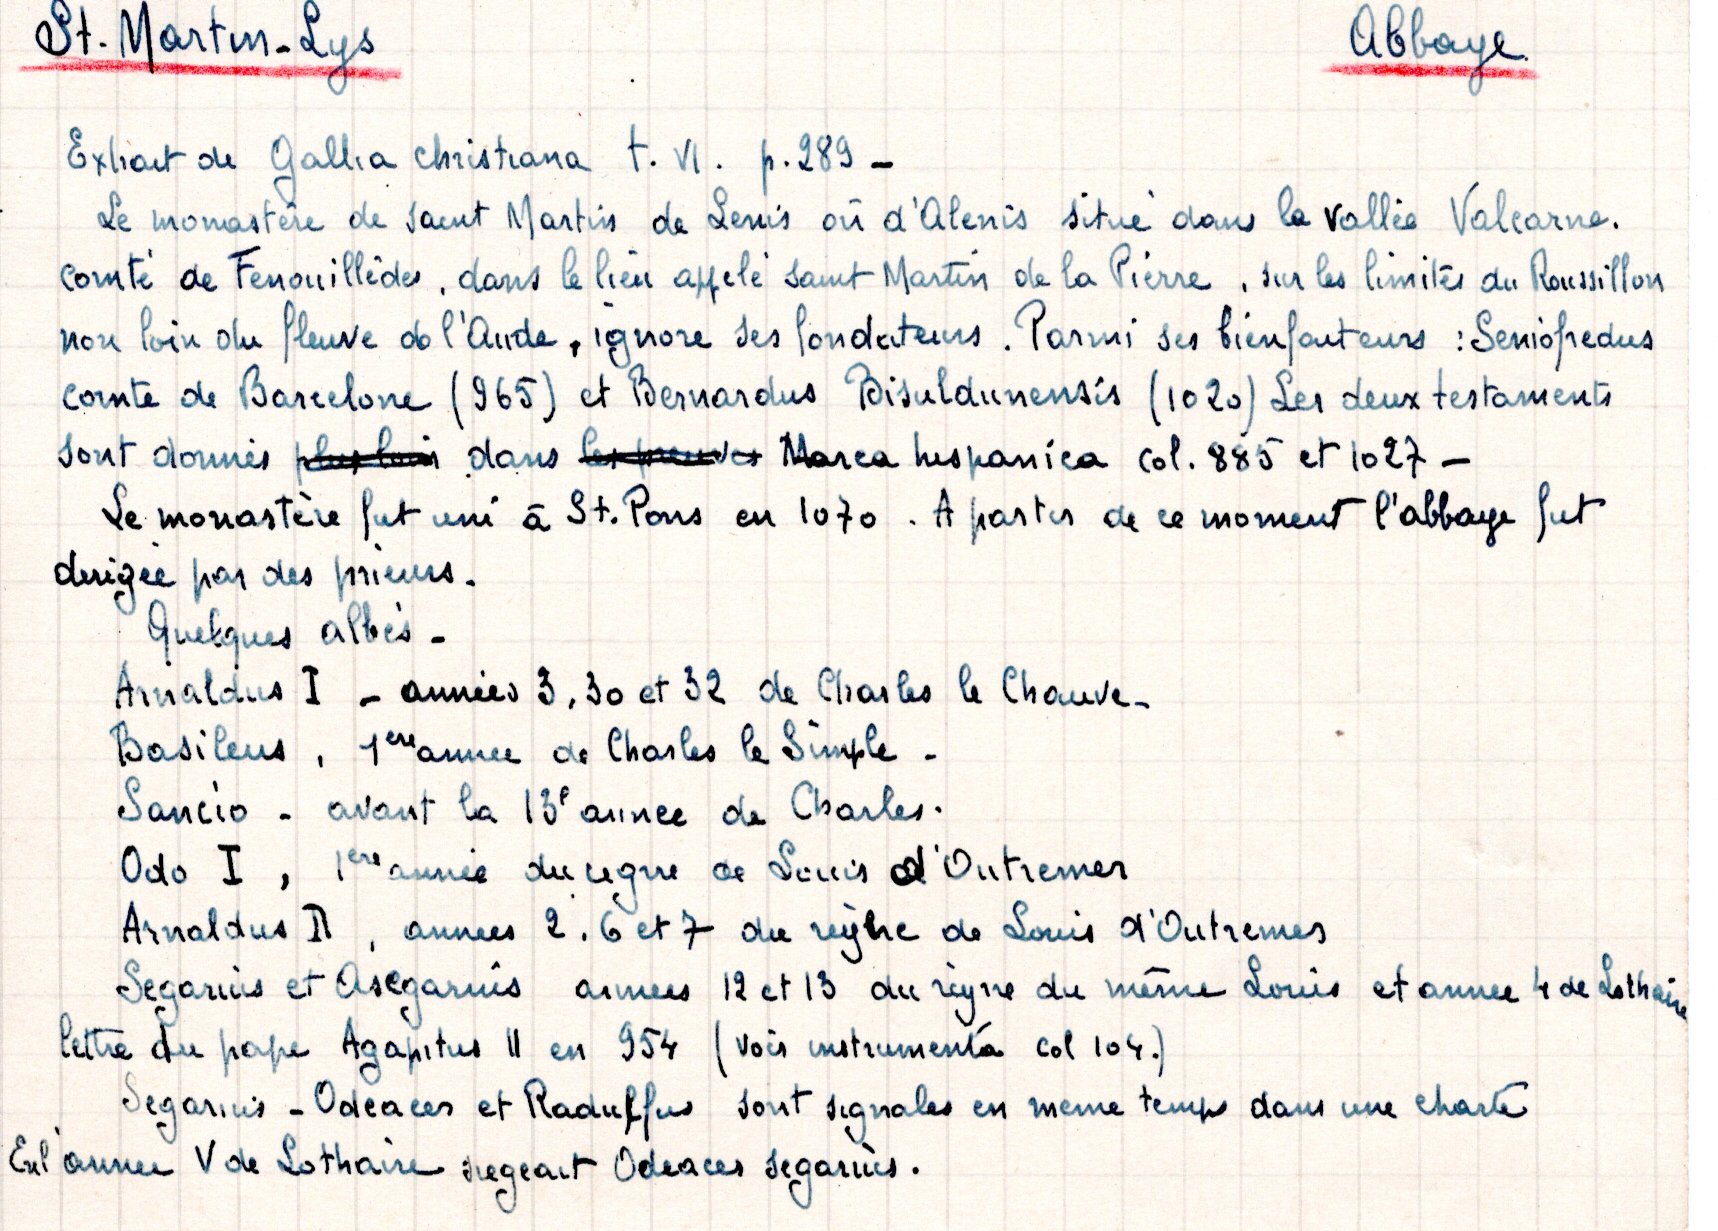 St. Martin-Lys Abbaye
Extrait de Gallia christiana t. VI. p. 289 -
Le monastère de saint Martin de Lenis où d'Alenis situé dans la vallée Valcarne.
comté de Fenouillèdes, dans le lieu appelé saint Martin de la Pierre, sur les limites du Roussillon
non loin du fleuve de l'Aude, ignore ses fondateurs. Parmi ses bienfauteurs : Seniofredus
comte de Barcelone (965) et Bernardus Bisuldunensis (1020) Les deux testaments
sont donnés plus loin dans les preuves Marca hispanica col. 885 et 1027 -
Le monastère fut uni à St. Pons en 1070. A partir de ce moment l'abbaye fut
dirigée par des prieurs.
Quelques abbés -
Arnaldus I - années 3, 30 et 32 de Charles le Chauve -
Basileus, 1ere annee de Charles le Simple -
Sancio - avant la 13e année de Charles.
Odo I, 1ere année du regne de Louis d'Outremer
Arnaldus II, annees 2, 6 et 7 du règne de Louis d'Outremer
Segarius et Asegarius annees 12 et 13 du règne du même Louis et annee 4 de Lothaire
lettre du pape Agapitus II en 954 (voir instrumenta col 104.)
Segarius - Odeaces et Radulfus sont signales en meme temps dans une charte
En l'annee V de Lothaire siegeait Odeaces segarius.